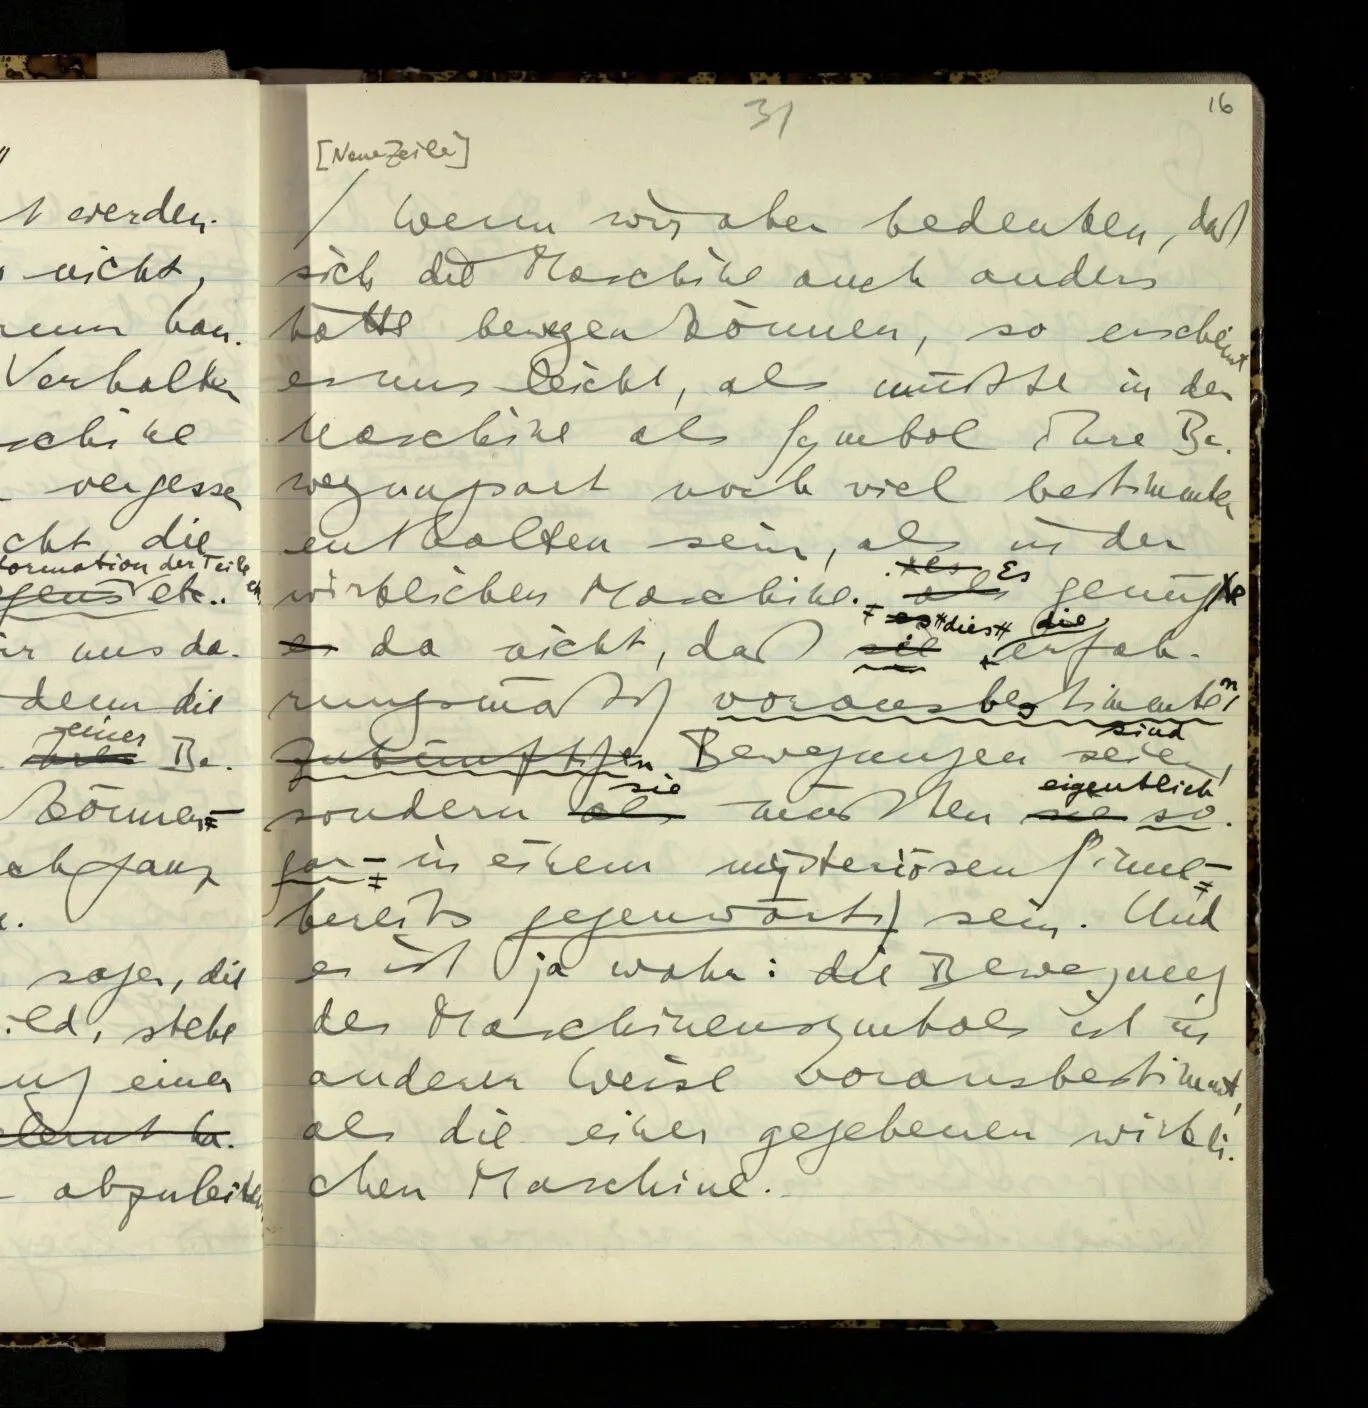 t werden.
nicht,
Verhalten
schine
vergessen
cht die
formation der Teile
etc..
uns da.
denn die
einer
Be-
können
ch ganz
sagen, die
ild, stehe
einer
elernt ha-
abzuleiten
31
16
[Neue Zeile]
/ Wenn wir aber bedenken, daß
sich die Maschine auch anders
hätte bewegen können, so erscheint
es uns leicht, als müßte in der
Maschine als Symbol ihre Be-
wegungsart noch viel bestimmter
enthalten sein, als in der
als Es
wirklichen Maschine. als genügte
es "dies" die
es da nicht, daß sie erfah-
rungsmäßig vorausbestimmten
sind
zukünftigen Bewegungen seien,
sie eigentlich
sondern als müßten sie so-
gar – in einem mysteriösen Sinne –
bereits gegenwärtig sein. Und
es ist ja wahr: die Bewegung
des Maschinensymbols ist in
anderer Weise vorausbestimmt,
als die einer gegebenen wirkli-
chen Maschine.